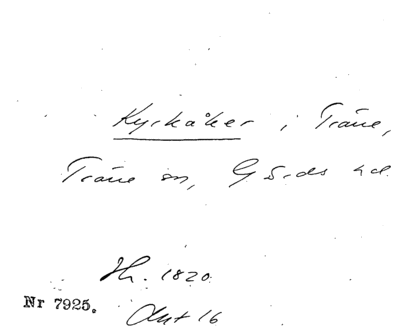 Kyrkåker i Träne,
Träne sn, Gärds hd.
Hr. 1820
Nr 7925.
Akt 16